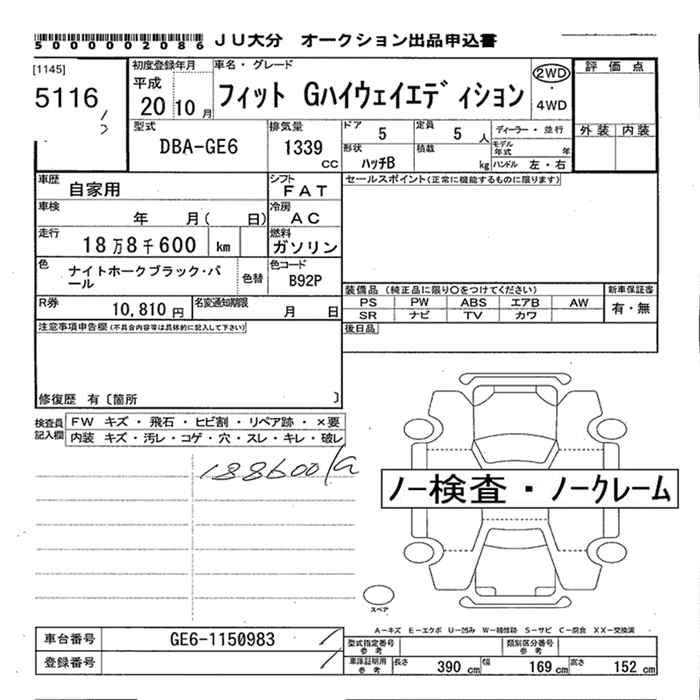 5000002086 JU大分 オークション出品申込書
[1145]
5116
初度登録年月
平成
20 10 月
車名・グレード
フィット Gハイウェイエディション
2WD
・
4WD
評価点
外装 内装
型式
DBA-GE6
排気量
1339
cc
ドア 5
定員 5 人
ディーラー・並行
モデル年式 年
形状
ハッチB
積載 kg
ハンドル 左・右
車歴 自家用
シフト FAT
セールスポイント(正常に機能するものに限ります)
車検 年 月( 日)
冷房 AC
走行 18万8千600 km
燃料 ガソリン
色 ナイトホークブラック・パール
色替
色コード B92P
装備品 (純正品に限り○をつけてください)
新車保証書
PS PW ABS エアB AW
有・無
SR ナビ TV カワ
R券 10,810 円
名変通知期限 月 日
後日品
注意事項申告欄(不具合内容等は具体的に記入して下さい)
修復歴 有〔箇所 〕
検査員記入欄
FW キズ・飛石・ヒビ割・リペア跡・×要
内装 キズ・汚レ・コゲ・穴・スレ・キレ・破レ
188600
ノー検査・ノークレーム
スペア
A-キズ E-エクボ U-凹み W-補修跡 S-サビ C-腐食 XX-交換済
車台番号 GE6-1150983
型式指定番号 参考
類別区分番号 参考
登録番号
車庫証明用 参考
長さ 390 cm
幅 169 cm
高さ 152 cm